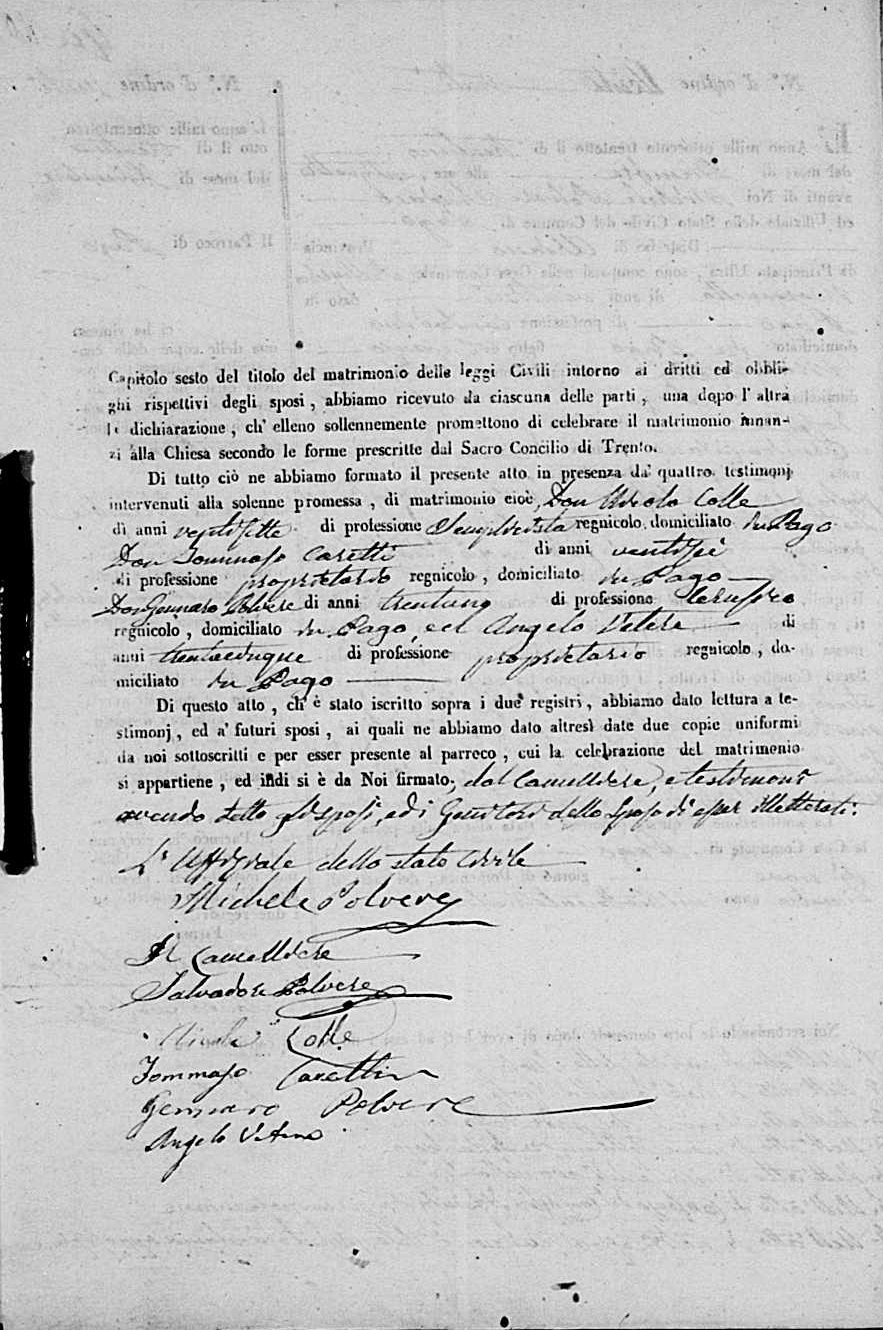 Capitolo sesto del titolo del matrimonio delle leggi Civili intorno ai dritti ed obbli-
ghi rispettivi degli sposi, abbiamo ricevuto da ciascuna delle parti, una dopo l'altra
la dichiarazione, ch'elleno sollennemente promettono di celebrare il matrimonio innan-
zi alla Chiesa secondo le forme prescritte dal Sacro Concilio di Trento.
Di tutto ciò ne abbiamo formato il presente atto in presenza da' quattro testimonj
intervenuti alla solenne promessa, di matrimonio cioè, Don Nicola Colle
di anni ventisette di professione regnicolo, domiciliato in Pago
Don Tommaso Caretti di anni ventisei
di professione proprietario regnicolo, domiciliato in Pago
Don Gennaro Polvere di anni trentuno di professione Cerusico
regnicolo, domiciliato in Pago, ed Angelo Vetere di
anni trentacinque di professione proprietario regnicolo, do-
miciliato in Pago
Di questo atto, ch'è stato iscritto sopra i due registri, abbiamo dato lettura a te-
stimonj, ed a' futuri sposi, ai quali ne abbiamo dato altresì date due copie uniformi
da noi sottoscritti e per esser presente al parroco, cui la celebrazione del matrimonio
si appartiene, ed indi si è da Noi firmato, dal Cancelliere, e testimoni
avendo detto gli sposi, ed i Genitori dello sposo di esser illetterati.
L'Uffiziale dello stato Civile
Michele Polvere
Il Cancelliere
Salvadore Polvere
Nicola Colle
Tommaso Caretti
Gennaro Polvere
Angelo Vetere